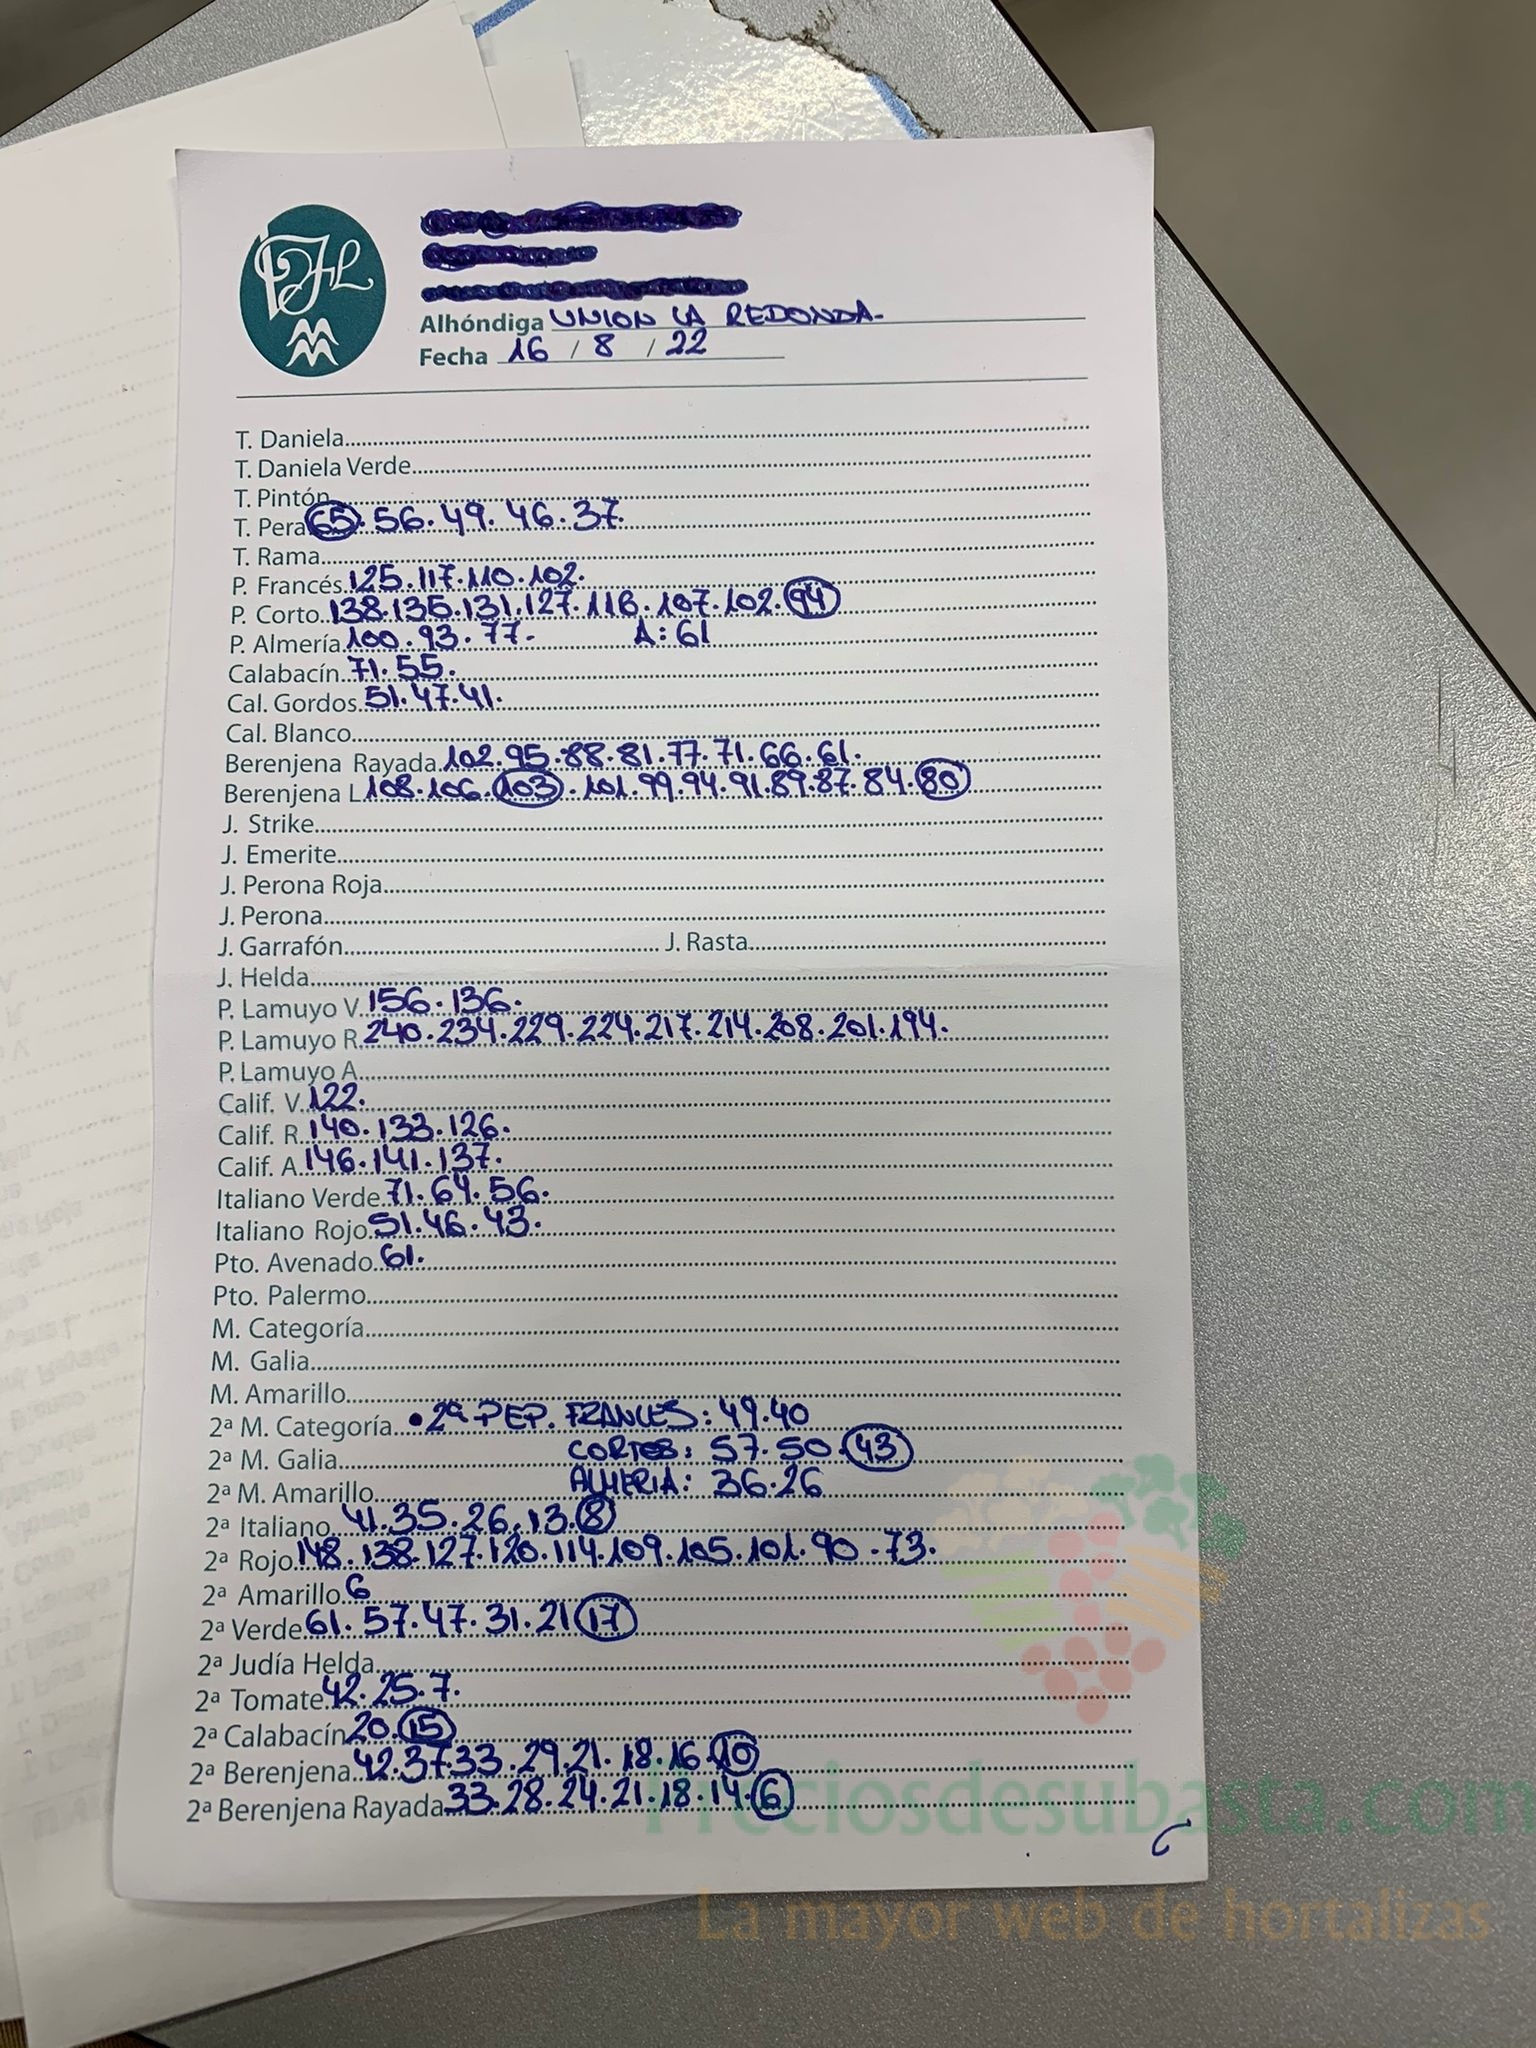 Alhóndiga UNION LA REDONDA.
Fecha 16 / 8 / 22
T. Daniela
T. Daniela Verde
T. Pintón
T. Pera 65. 56. 49. 46. 37.
T. Rama
P. Francés 125. 117. 110. 102.
P. Corto 138. 135. 131. 127. 116. 107. 102. 94
P. Almería 100. 93. 77. A: 61
Calabacín 71. 55.
Cal. Gordos 51. 47. 41.
Cal. Blanco
Berenjena Rayada 102. 95. 88. 81. 77. 71. 66. 61.
Berenjena L 108. 106. 103. 101. 99. 94. 91. 89. 87. 84. 80
J. Strike
J. Emerite
J. Perona Roja
J. Perona
J. Garrafón J. Rasta
J. Helda
P. Lamuyo V. 156. 136.
P. Lamuyo R. 240. 234. 229. 224. 217. 214. 208. 201. 194.
P. Lamuyo A
Calif. V. 122.
Calif. R. 140. 133. 126.
Calif. A. 146. 141. 137.
Italiano Verde 71. 64. 56.
Italiano Rojo 51. 46. 43.
Pto. Avenado 61.
Pto. Palermo
M. Categoría
M. Galia
M. Amarillo
2ª M. Categoría • 2ª PEP. FRANCES: 49. 40
2ª M. Galia CORTOS: 57. 50. 43
2ª M. Amarillo ALMERIA: 36. 26
2ª Italiano 41. 35. 26. 13. 8
2ª Rojo 148. 138. 127. 120. 114. 109. 105. 101. 90. 73.
2ª Amarillo 6
2ª Verde 61. 57. 47. 31. 21 17
2ª Judía Helda
2ª Tomate 42. 25. 7.
2ª Calabacín 20. 15
2ª Berenjena 42. 37. 33. 29. 21. 18. 16. 10
2ª Berenjena Rayada 33. 28. 24. 21. 18. 14. 6
Preciosdesubasta.com
La mayor web de hortalizas